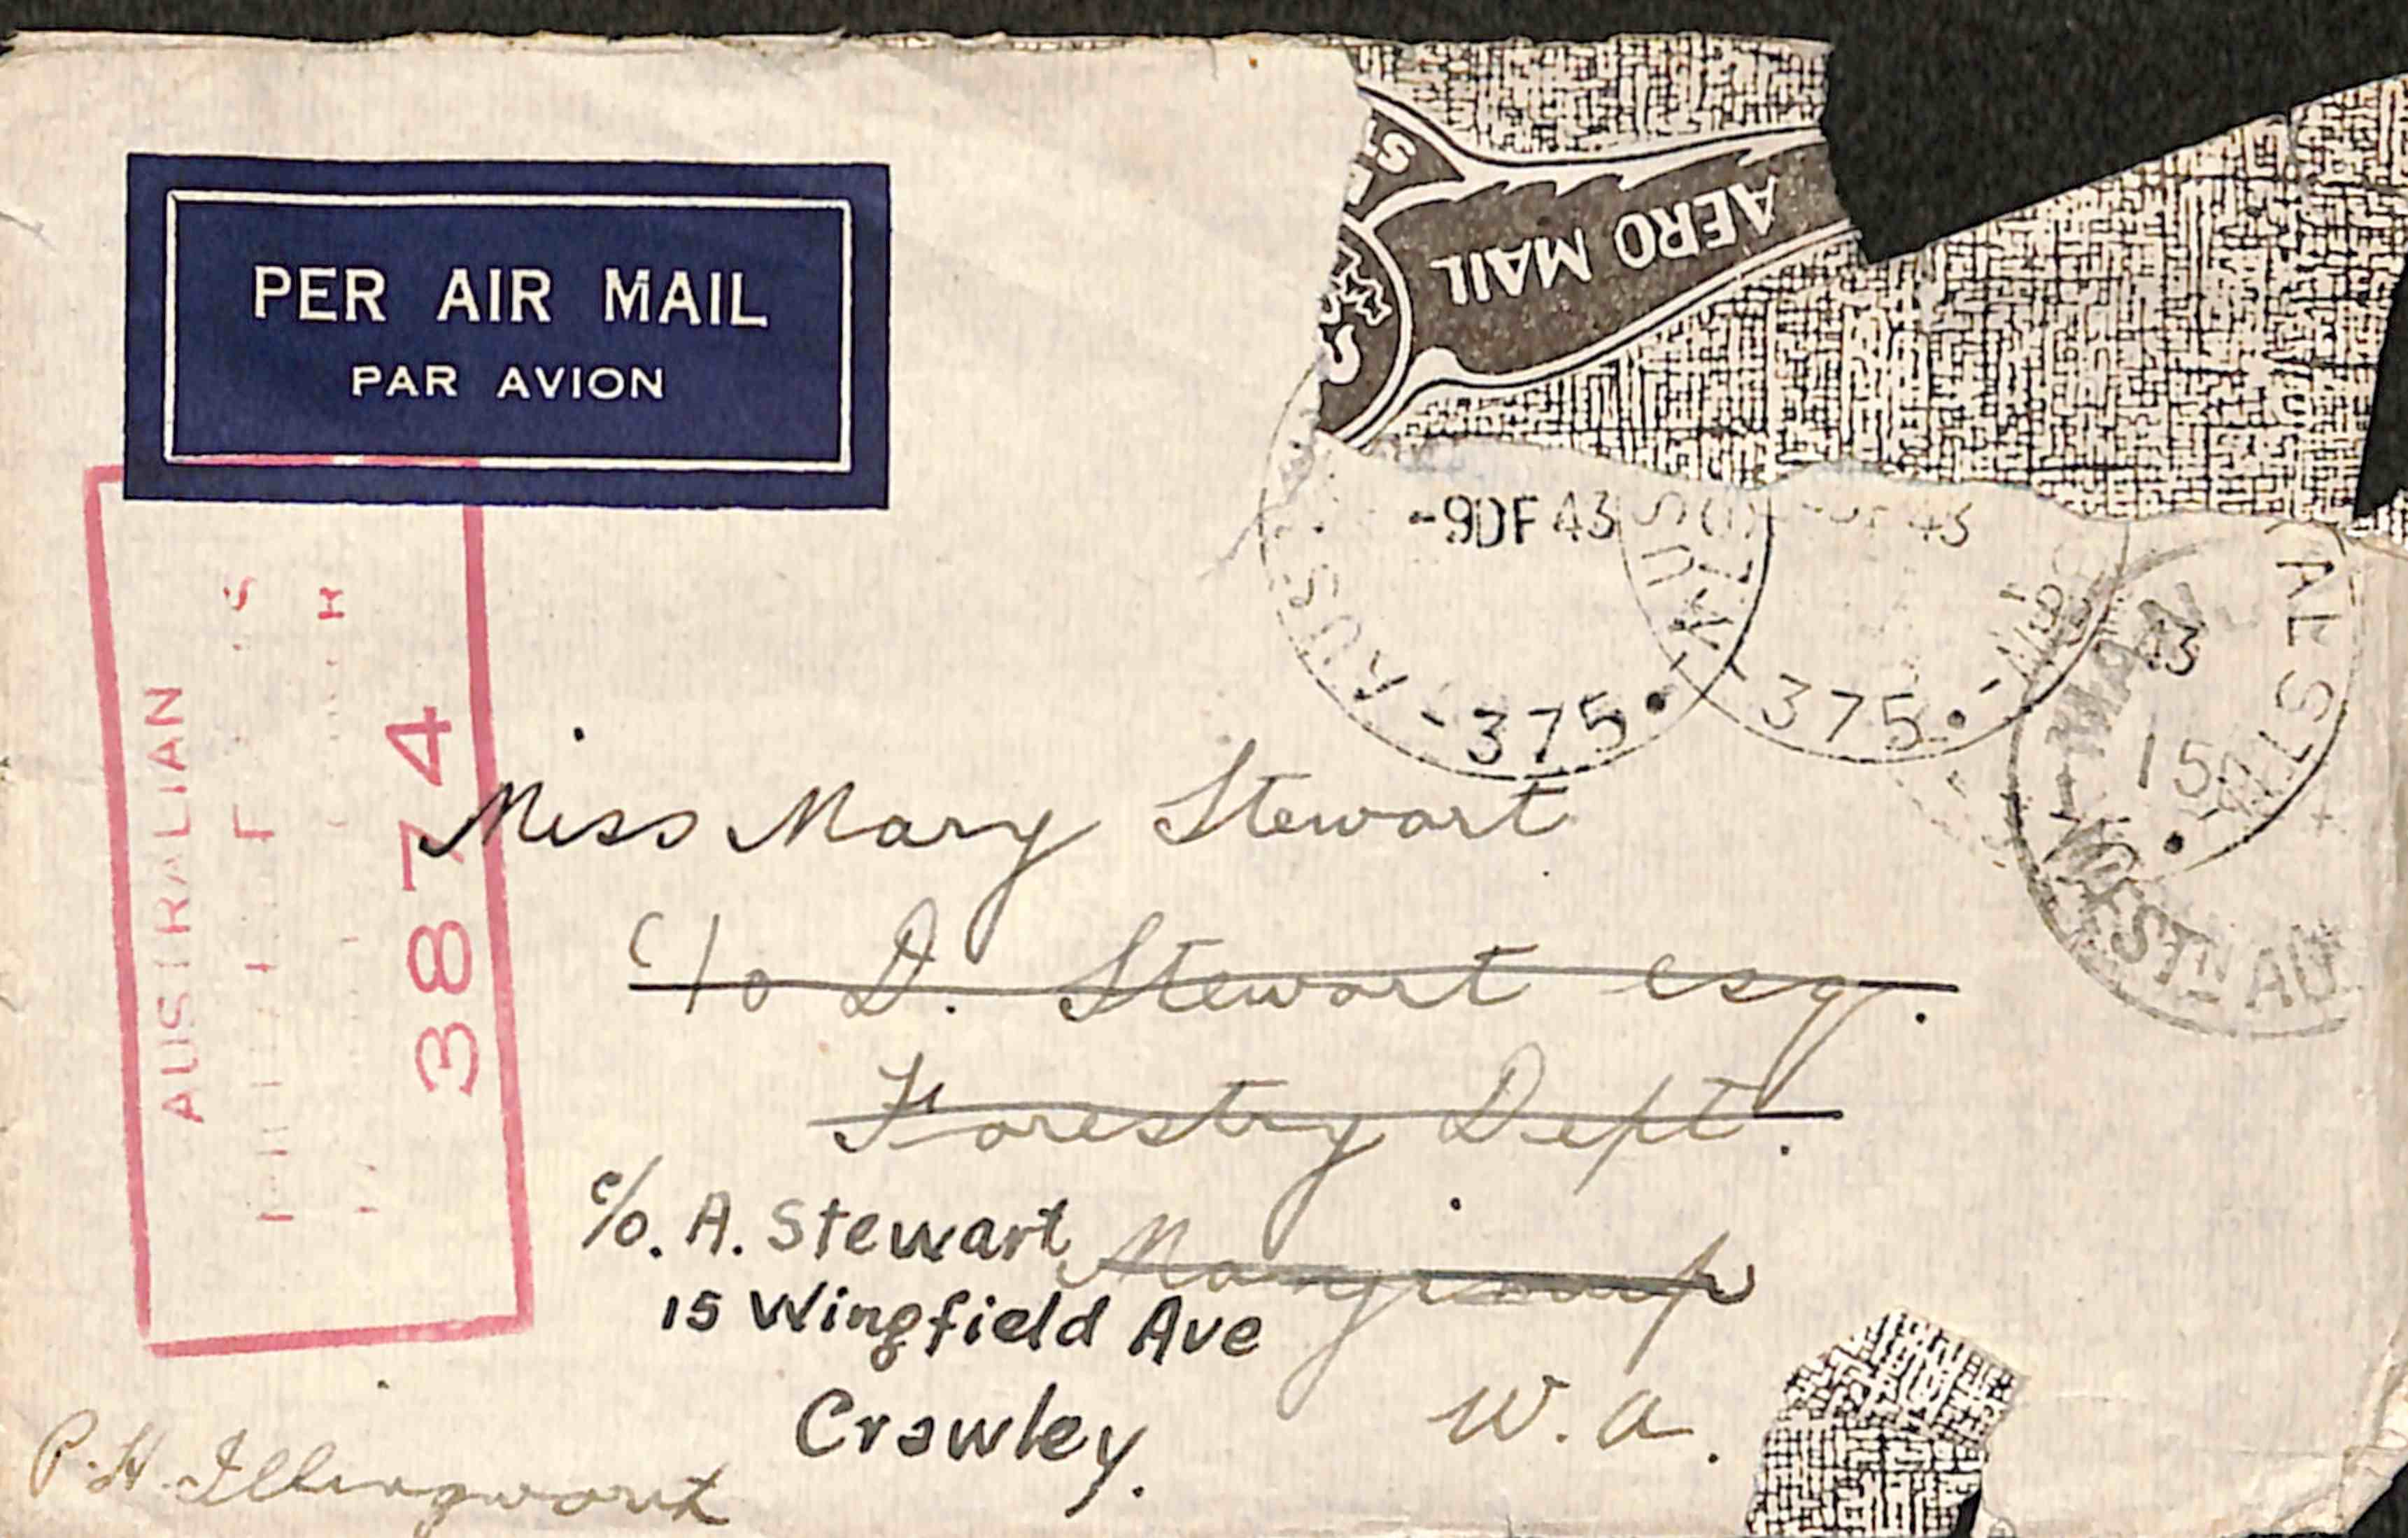 PER AIR MAIL
PAR AVION
AERO MAIL
-9DE43
AUST.
375
375
15
WEST- AU
AUSTRALIAN
3874
Miss Mary Stewart
C/o D. Stewart esq.
Forestry Dept.
c/o. A. Stewart
15 Wingfield Ave
Crawley.
W. A.
P. H. Illingworth